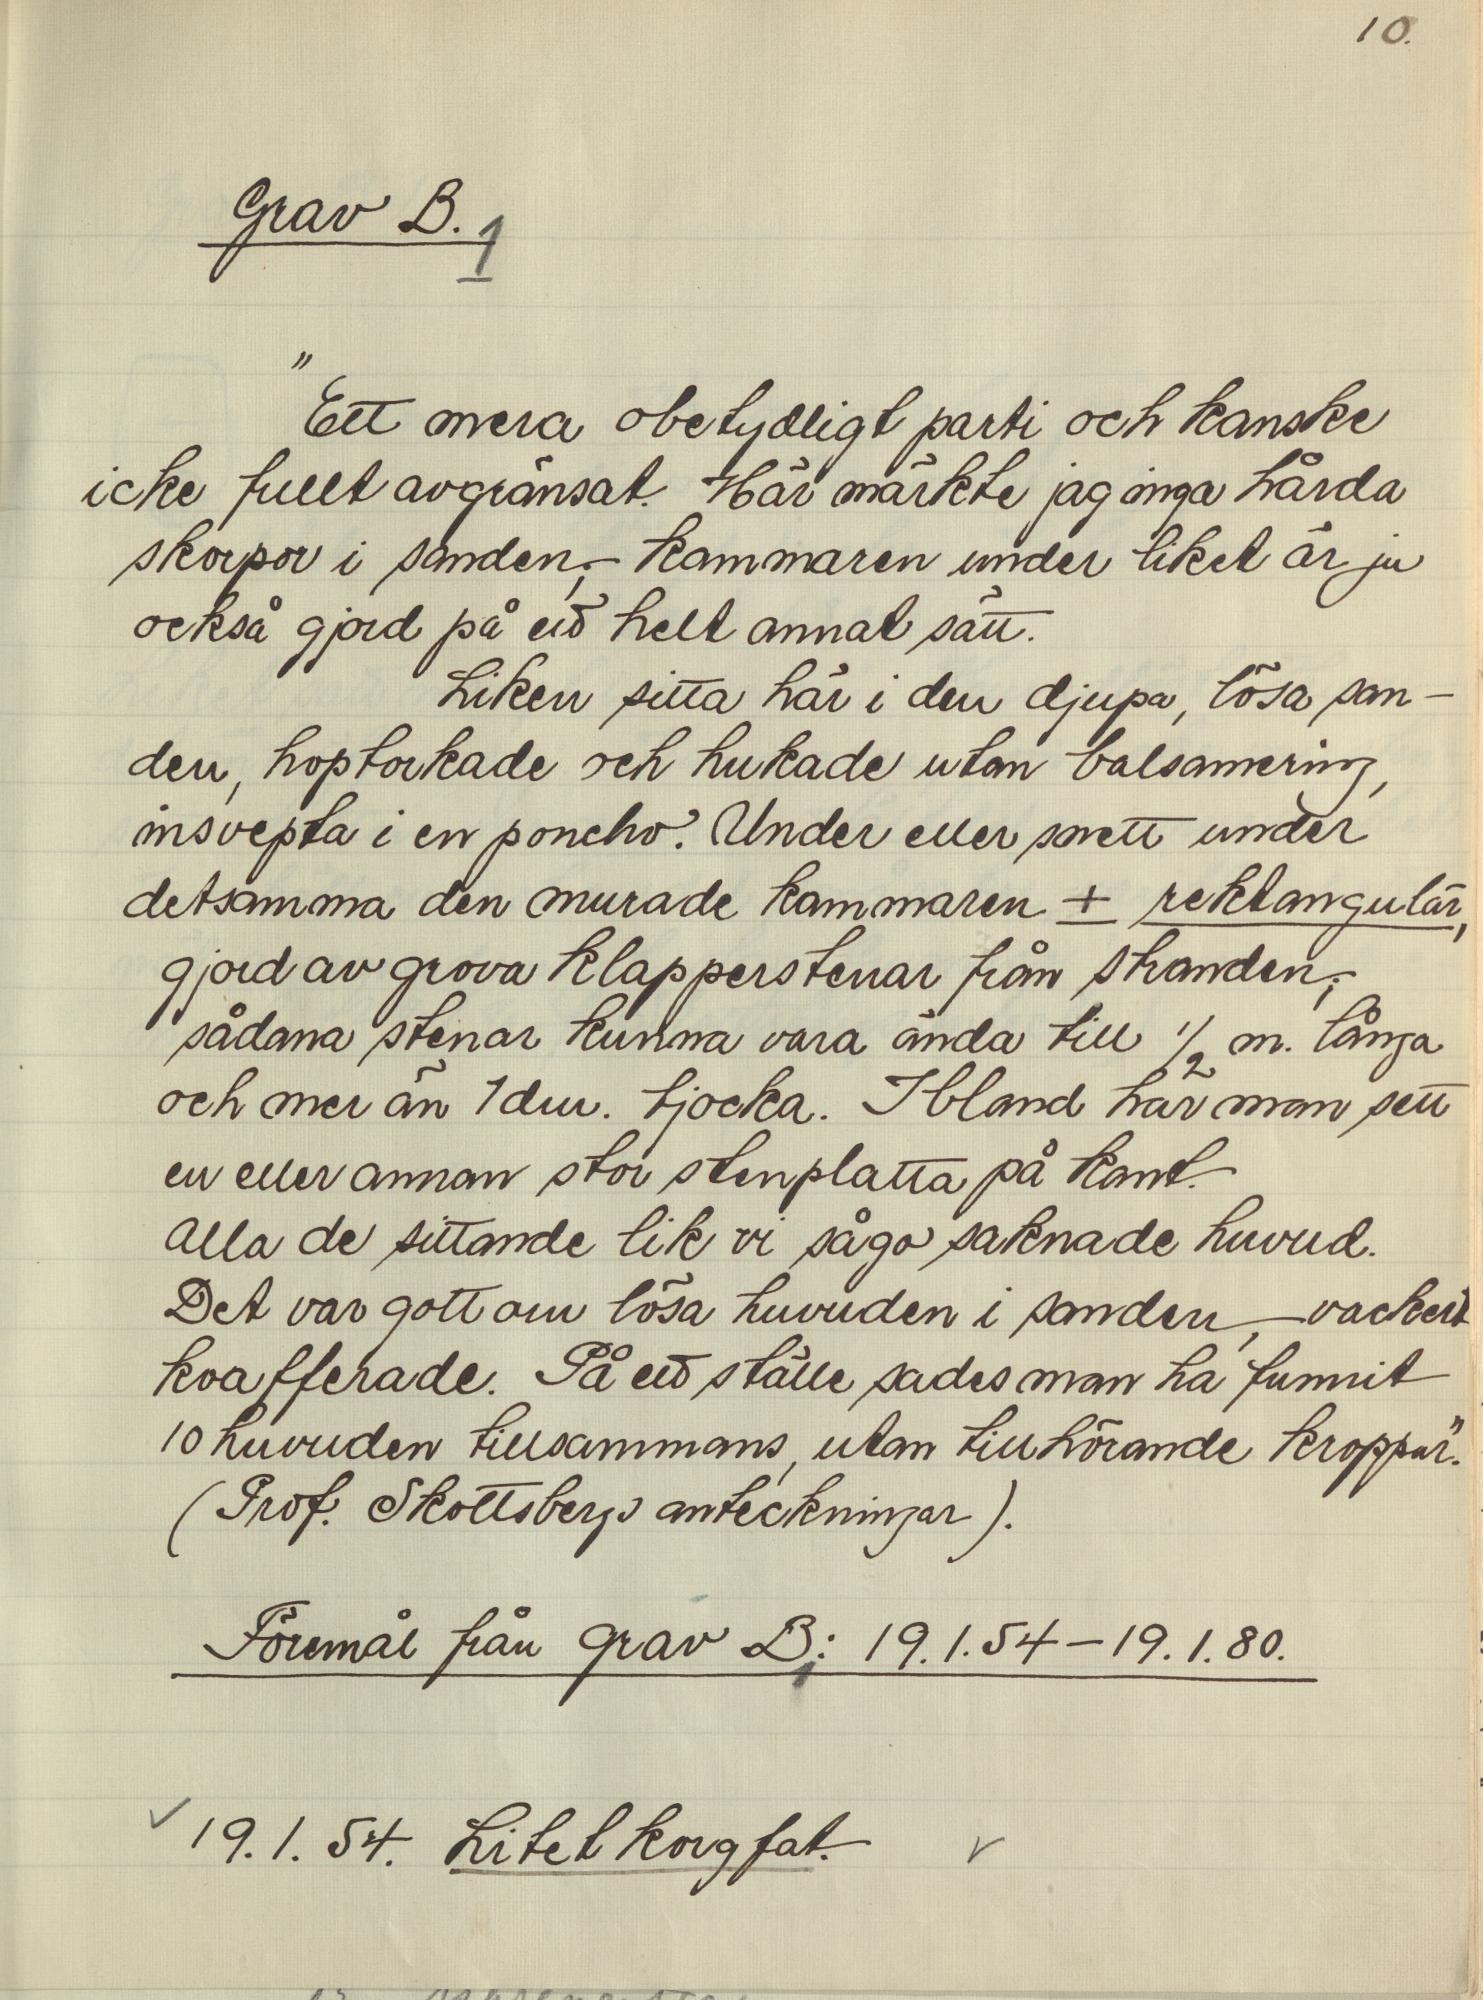 10.
Grav B.1
"Ett mera obetydligt parti och kanske
icke fullt avgränsat. Här märkte jag inga hårda
skorpor i sanden,– kammaren under liket är ju
också gjord på ett helt annat sätt.
Liken sitta här i den djupa, lösa san–
den, hoptorkade och hukade utan balsamering,
insvepta i en poncho. Under eller snett under
detsamma den murade kammaren ± rektangulär,
gjord av grova klapperstenar från stranden,–
sådana stenar kunna vara ända till 1/2 m. långa
och mer än 1 dm. tjocka. Ibland har man sett
en eller annan stor stenplatta på kant.
Alla de sittande lik vi sågo saknade huvud.
Det var gott om lösa huvuden i sanden,– vackert
koafferade. På ett ställe sades man ha funnit
10 huvuden tillsammans, utan tillhörande kroppar."
(Prof. Skottsbergs anteckningar).
Föremål från grav B1: 19.1.54–19.1.80.
✓ 19.1.54. Litet korgfat. ✓